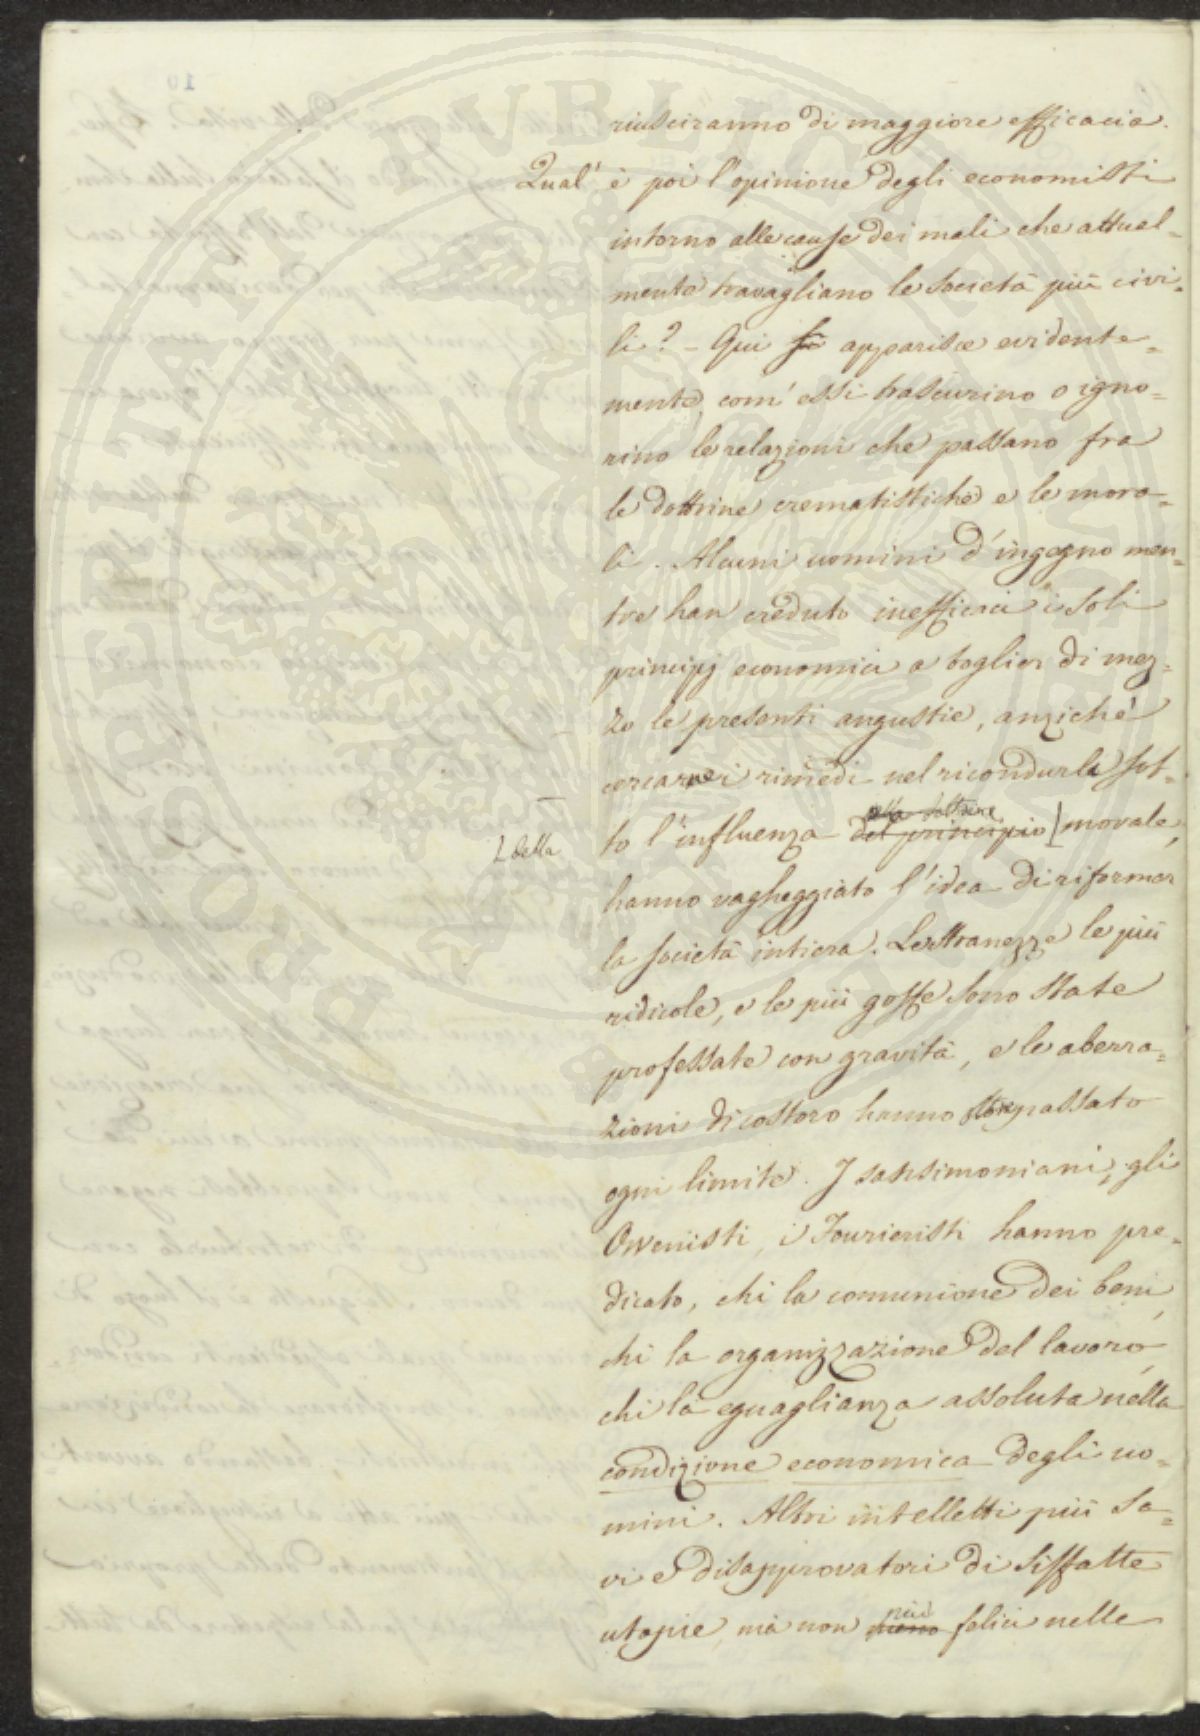 riusciranno di maggiore efficacia.
Qual' è poi l'opinione degli economisti
intorno alle cause dei mali che attual=
mente travagliano le società più civi=
li? - Qui si apparisce evidente=
mente com' essi trascurino o igno=
rino le relazioni che passano fra
le dottrine crematistiche e le mora=
li. Alcuni uomini d'ingegno men=
tre han creduto inefficaci i soli
principj economici a toglier di mez=
zo le presenti angustie, anziché
cercarne i rimedi nel ricondurle sot=
alla dottrine
to l'influenza del principio morale,
della
hanno vagheggiato l'idea di riformar
la società intiera. Le stranezze le più
ridicole, e le più goffe sono state
professate con gravità, e le aberra=
zioni di costoro hanno sorpassato
ogni limite. I sansimoniani, gli
Owenisti, i Fourieristi hanno pre=
dicato, chi la comunione dei beni,
chi la organizzazione del lavoro,
chi la eguaglianza assoluta nella
condizione economica degli uo=
mini. Altri intelletti più sa=
vi e disapprovatori di siffatte
più
utopie, ma non meno felici nelle
PROSPERITATI PVBLICAE
10